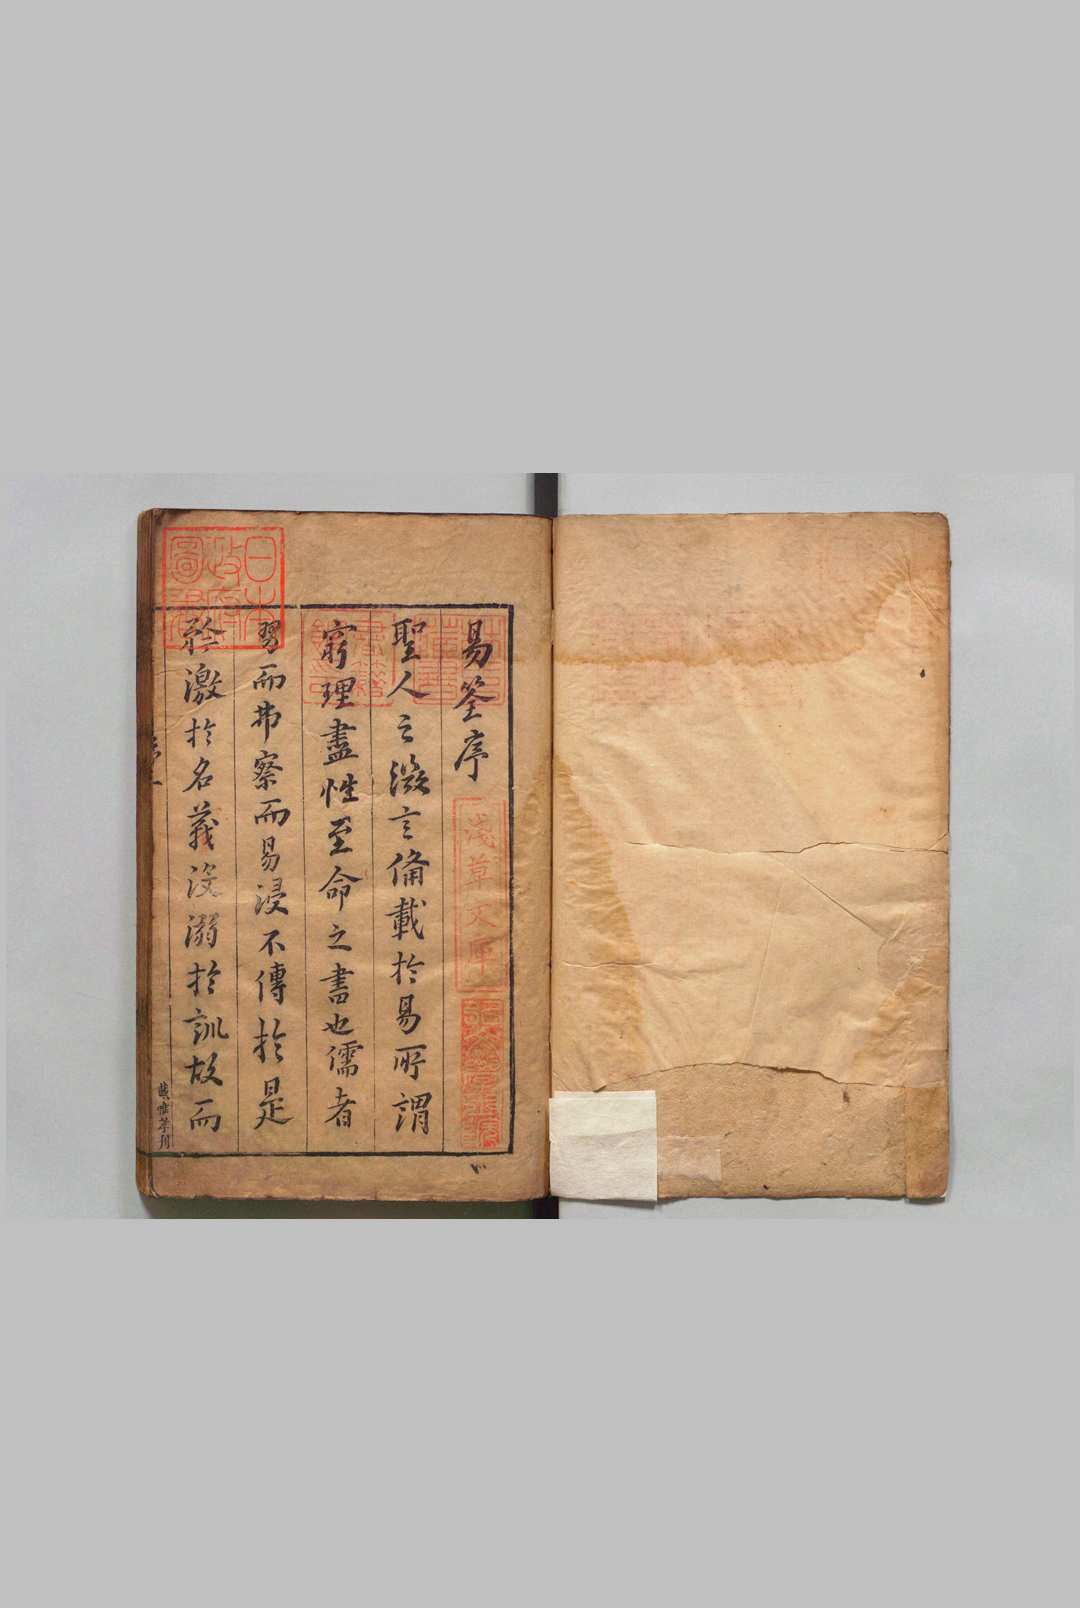 易筌序
聖人之微言備載於易所謂
窮理盡性至命之書也儒者
習而弗察而易浸不傳於是
矜激於名義沒溺於訓故而
淺草文庫
日本政府圖書